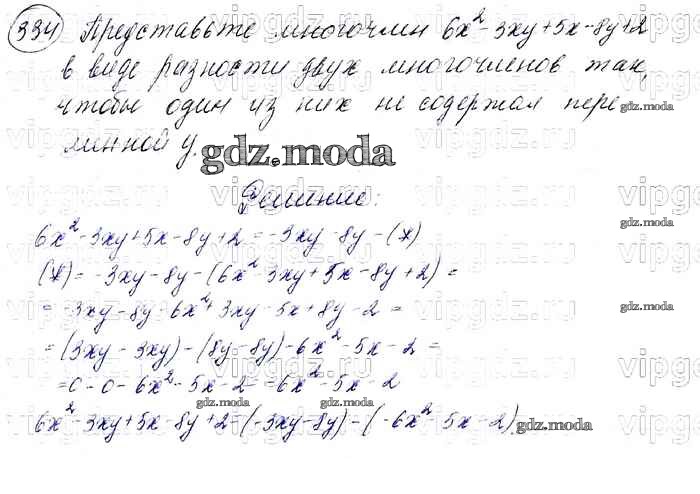 334 Представьте многочлен 6x² - 3xy + 5x - 8y + 2
в виде разности двух многочленов так,
чтобы один из них не содержал пере
gdz.moda
менной y.
gdz.moda
Решение:
6x² - 3xy + 5x - 8y + 2 = -3xy - 8y - (*)
gdz.moda
(*) = -3xy - 8y - (6x² - 3xy + 5x - 8y + 2) =
= -3xy - 8y - 6x² + 3xy - 5x + 8y - 2 =
gdz.moda
= (3xy - 3xy) - (8y - 8y) - 6x² - 5x - 2 =
= 0 - 0 - 6x² - 5x - 2 = -6x² - 5x - 2
gdz.moda gdz.moda
6x² - 3xy + 5x - 8y + 2 = (-3xy - 8y) - (-6x² - 5x - 2)
gdz.moda
vipgdz.ru